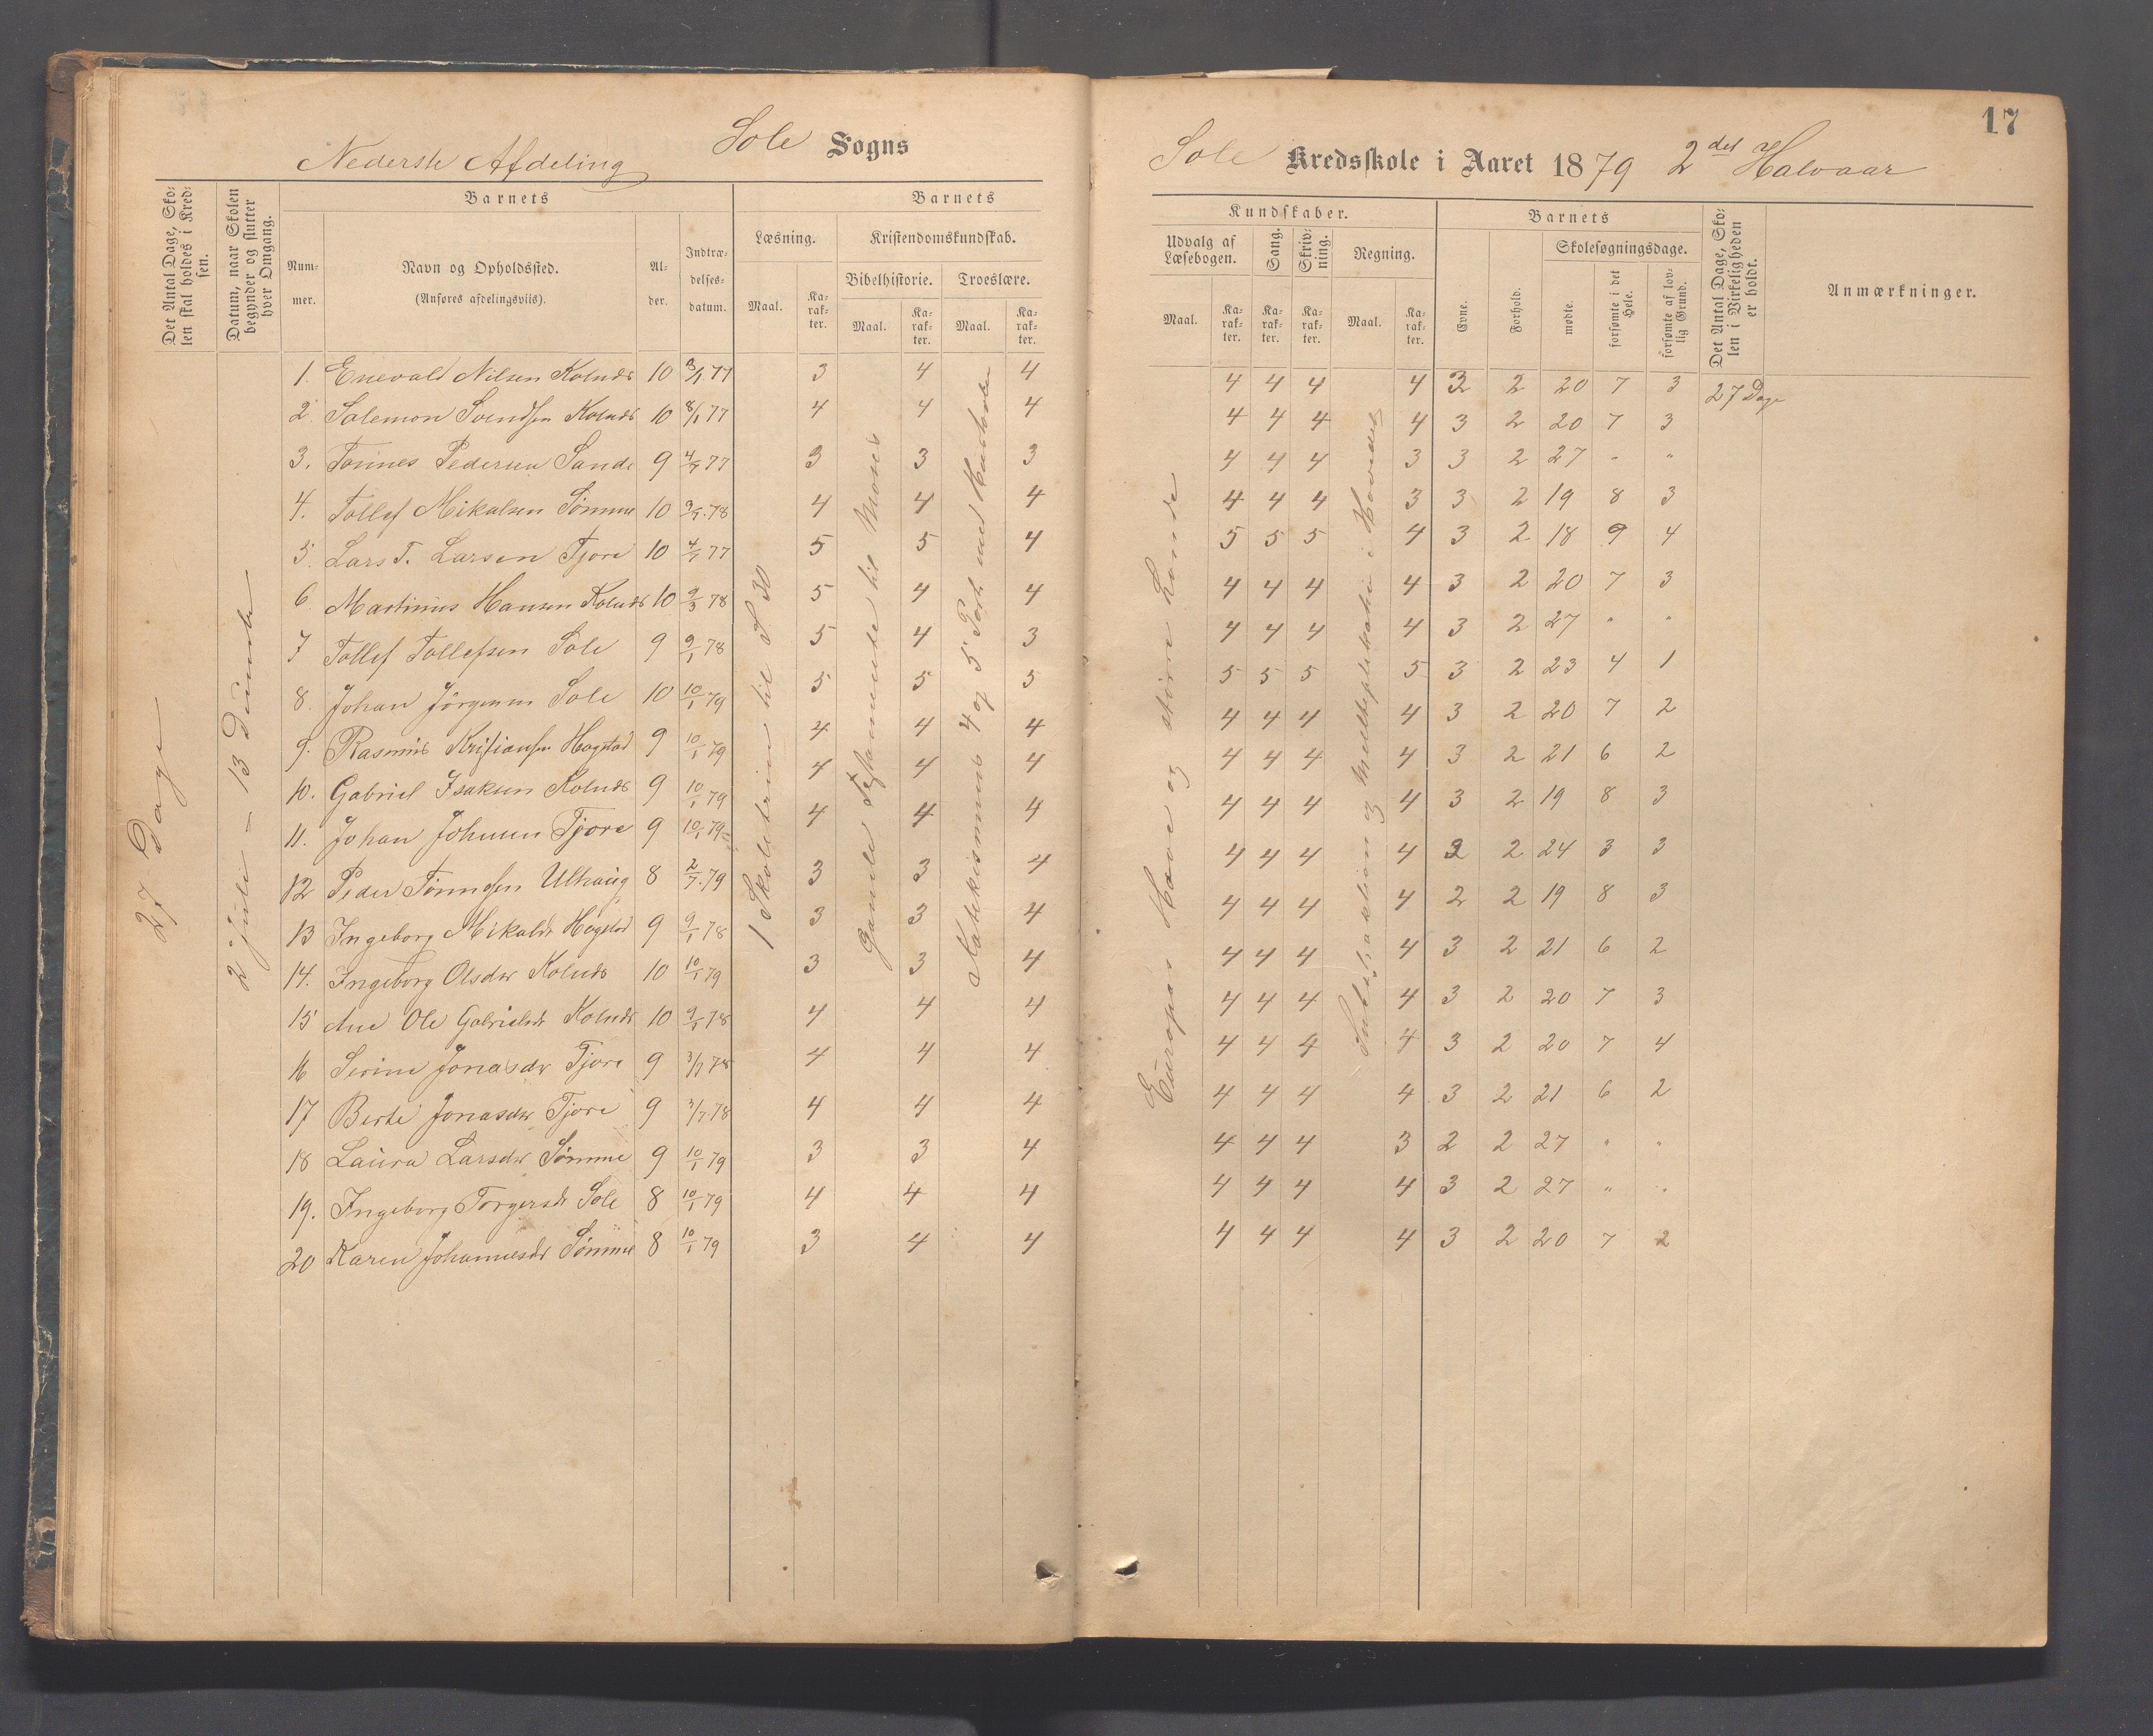 17
Nederste Afdeling Sole Sogns
Sole Kredsskole i Aaret 1879 2det Halvaar
Det Antal Dage, Skolen skal holdes i Kredsen.
Datum, naar Skolen begynder og slutter hver Omgang.
Barnets
Nummer.
Navn og Opholdssted.
(Anføres afdelingsviis).
Alder.
Indtrædelsesdatum.
Barnets
Læsning.
Maal.
Karakter.
Kristendomskundskab.
Bibelhistorie.
Maal.
Karakter.
Troeslære.
Maal.
Karakter.
Kundskaber.
Udvalg af Læsebogen.
Maal.
Karakter.
Sang.
Karakter.
Skrivning.
Karakter.
Regning.
Maal.
Karakter.
Barnets
Evne.
Forhold.
Skolesøgningsdage.
mødte.
forsømte i det Hele.
forsømte af lovlig Grund.
Det Antal Dage, Skolen i Virkeligheden er holdt.
Anmærkninger.
27 Dage
2 Juli - 13 Desembr
1 Skoletrin til S. 30
Gamle Testamente til Moses
Katekismus 4 og 5 Part med
Europas Have og større Lande
Subtraktion og Multiplikation i Hovedet
27 Dage
1. Enevald Nilsen Kolnes 10 3/7 77 3 4 4 4 4 4 4 3 2 20 7 3
2 Salemon Svendsen Kolnes 10 8/1 77 4 4 4 4 4 4 4 3 2 20 7 3
3. Tønnes Pedersen Sande 9 4/7 77 3 3 3 4 4 4 3 3 2 27 " "
4. Tollef Mikalsen Sømme 10 3/7 78 4 4 4 4 4 4 3 3 2 19 8 3
5. Lars T. Larsen Tjore 10 4/7 77 5 5 4 5 5 5 4 3 2 18 9 4
6 Martinius Hansen Kolnes 10 9/3 78 5 4 4 4 4 4 4 3 2 20 7 3
7 Tollef Tollefsen Sole 9 9/1 78 5 4 3 4 4 4 4 3 2 27 " "
8. Johan Jörgensen Sole 10 10/1 79 5 5 5 5 5 5 5 3 2 23 4 1
9. Rasmus Kristiansen Hogstad 9 10/1 79 4 4 4 4 4 4 4 3 2 20 7 2
10. Gabriel Isaksen Kolnes 9 10/1 79 4 4 4 4 4 4 4 3 2 21 6 2
11. Johan Johnsen Tjore 9 10/1 79 4 4 4 4 4 4 4 3 2 19 8 3
12 Peder Tønnesen Ulhaug 8 2/7 79 3 3 4 4 4 4 4 2 2 24 3 3
13 Ingeborg Mikalsdr Hogstad 9 9/1 78 3 3 4 4 4 4 4 2 2 19 8 3
14. Ingeborg Olsdr Kolnes 10 10/1 79 3 3 4 4 4 4 4 3 2 21 6 2
15 Ane Ole Gabrielsdr Kolnes 10 9/1 78 4 4 4 4 4 4 4 3 2 20 7 3
16 Serine Jonasdr Tjore 9 3/7 78 4 4 4 4 4 4 4 3 2 20 7 4
17 Berte Jonasdr Tjore 9 3/7 78 4 4 4 4 4 4 4 3 2 21 6 2
18 Laura Larsdr Sømme 9 10/1 79 3 3 4 4 4 4 3 2 2 27 " "
19. Ingeborg Torgersdr Sole 8 10/1 79 4 4 4 4 4 4 4 3 2 27 " "
20 Karen Johannesdr Sømme 8 10/1 79 3 4 4 4 4 4 4 3 2 20 7 2